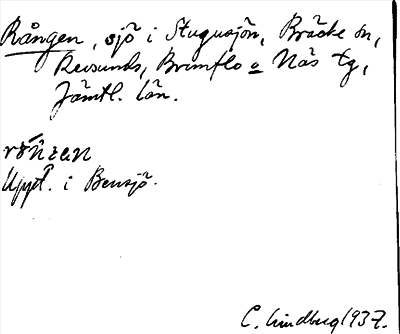 Rången, sjö i Stugusjön, Bräcke sn,
Revsunds, Brunflo o Näs tg,
Jämtl. län.
Uppt. i Bensjö.
C. Lindberg 1937.